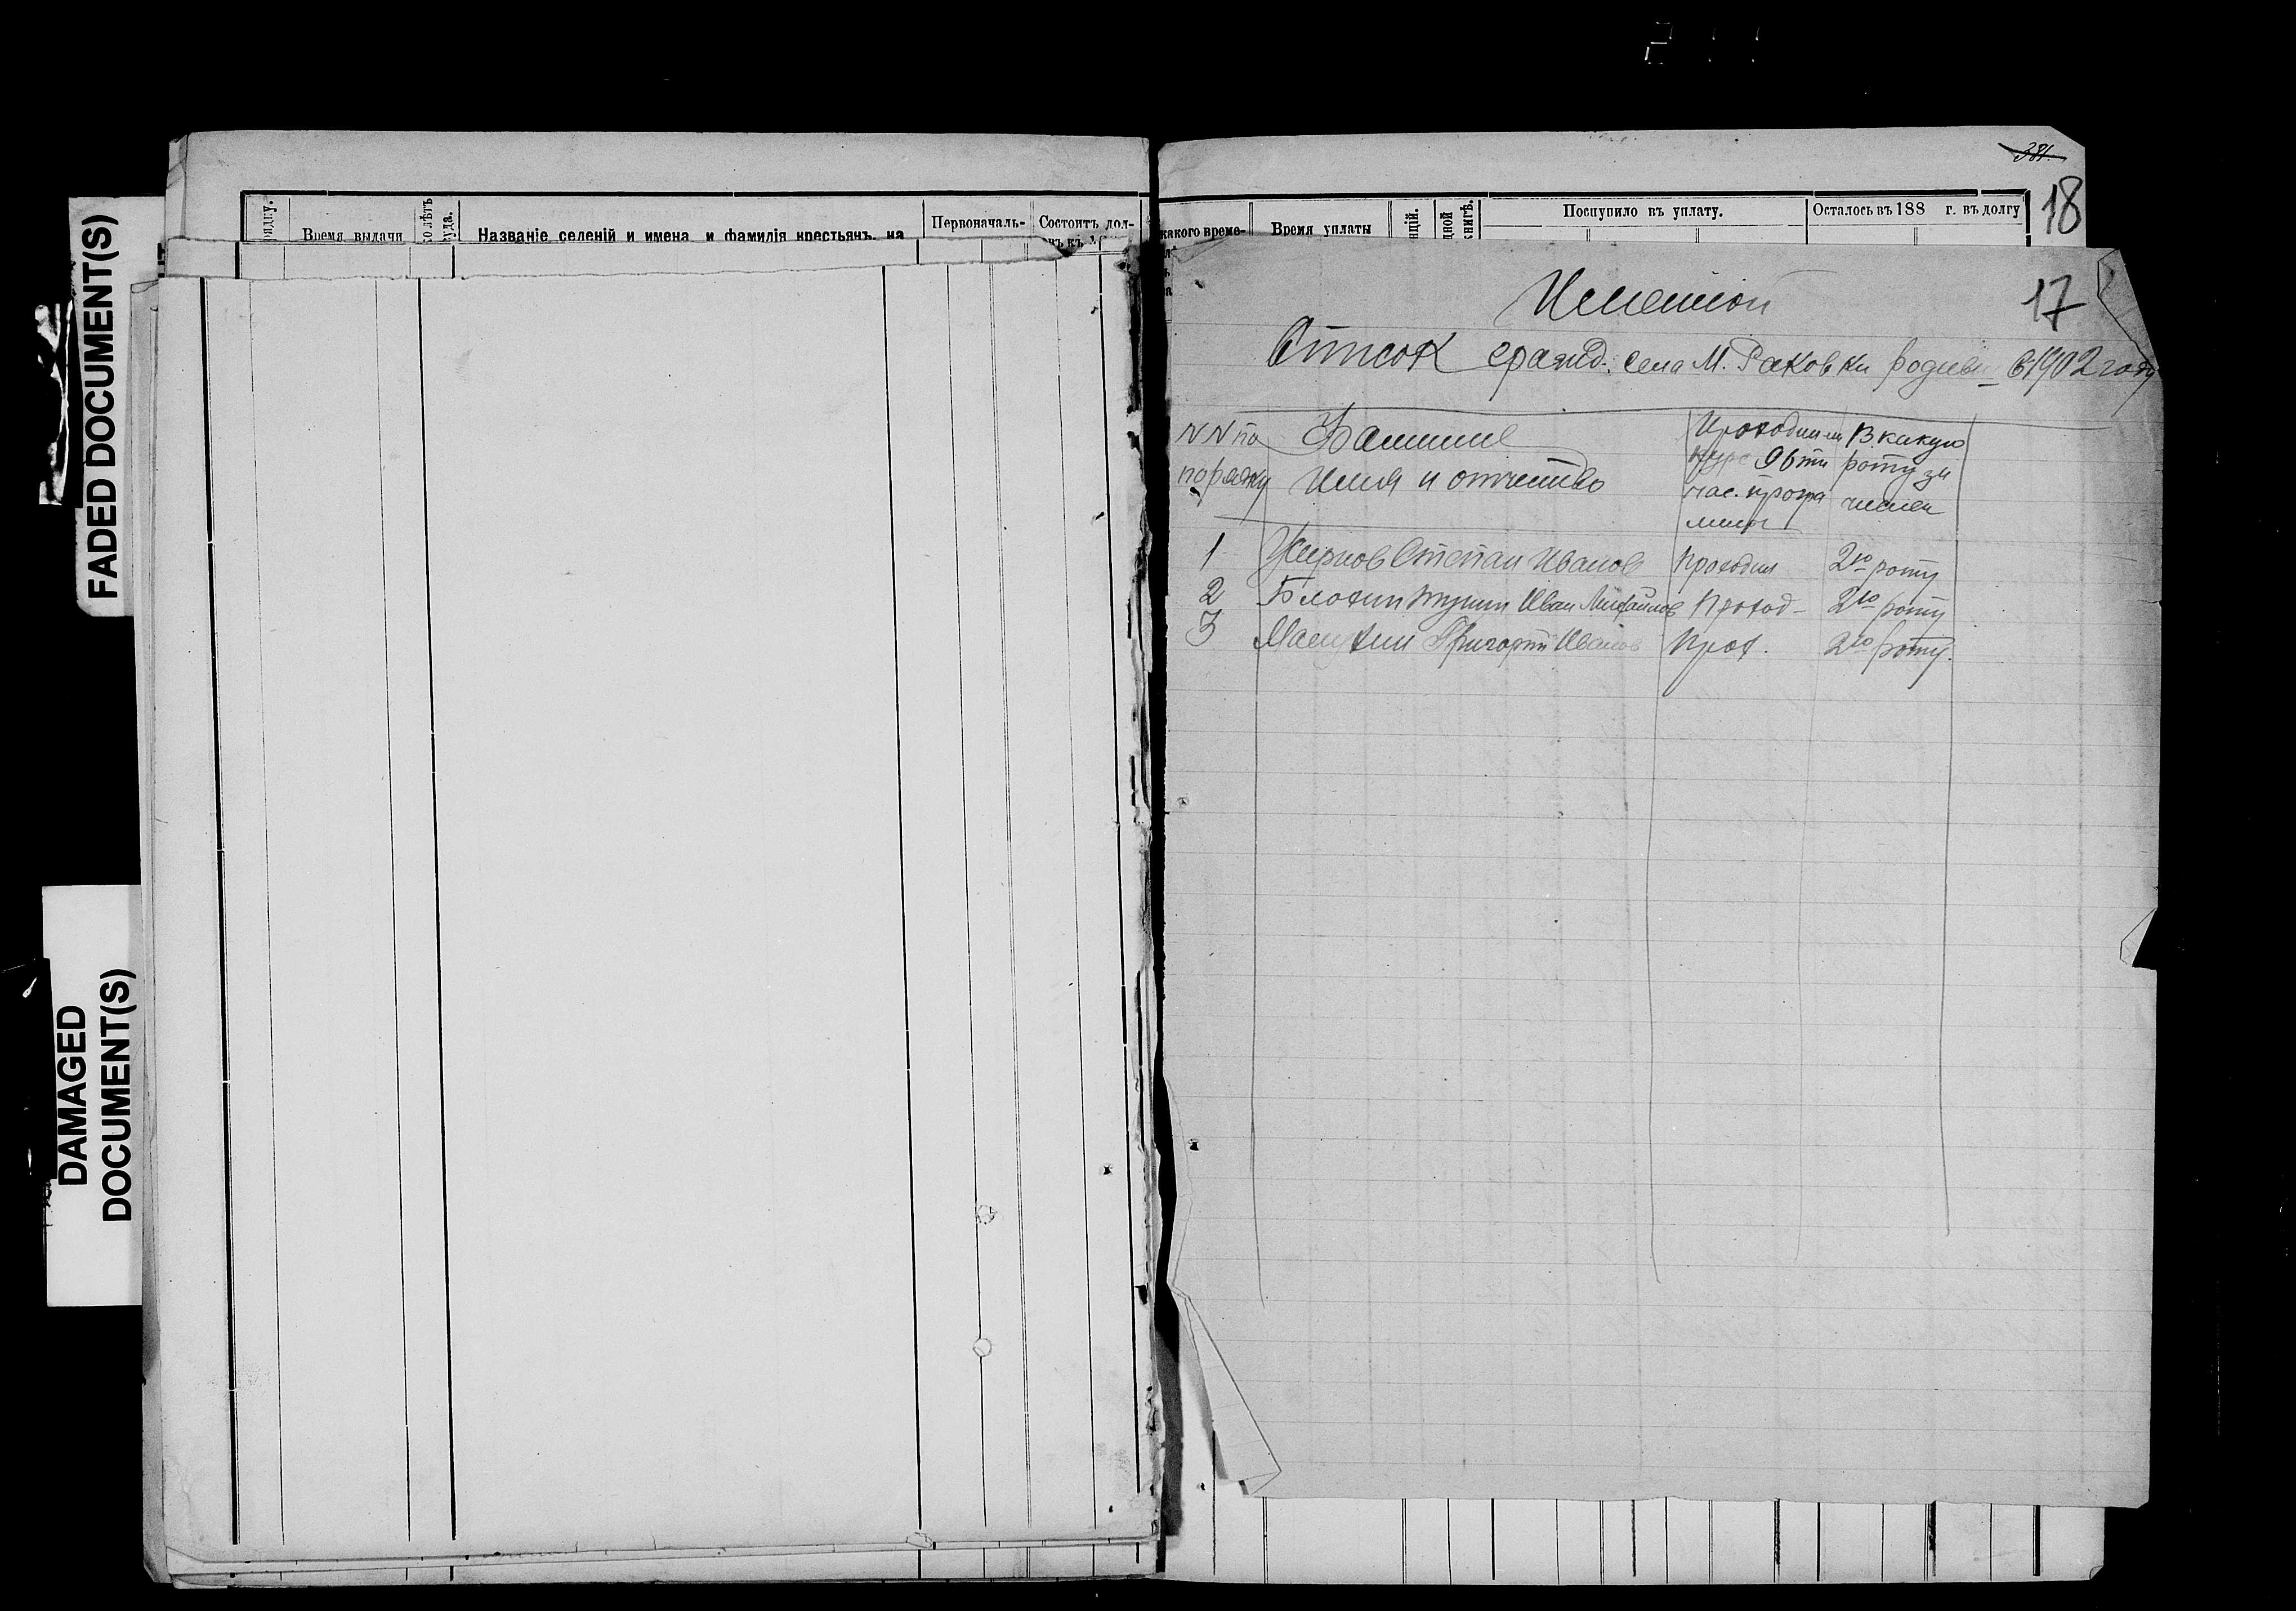 FADED DOCUMENT(S)
DAMAGED
DOCUMENT(S)
Время выдачи
Названіе селеній и имена и фамилія крестьянъ, на
Первоначаль-
Состоитъ дол-
какого време-
Время уплаты
Поступило въ уплату.
Осталось въ 188 г. въ долгу
381.
18
17
Именной
Список гражд: села М. Раковки родивш в 1902 году
NN по порядку
Фамилие
Имя и отчество
Проходил ли
курс 96ти
час. програ
ммы
В какую
роту за
числен
1 Жирнов Степан Иванов Проходил 2ю роту
2 Иван Михайлов Проход- 2ю роту
3 Григорий Иванов Прох. 2ю роту.